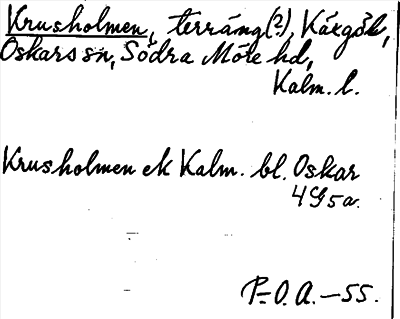 Krusholmen, terräng(?), Kärgöl,
Oskars sn, Södra Möre hd,
Kalm. l.
Krusholmen ek Kalm. bl. Oskar
4G5a.
P-O.A.-55.